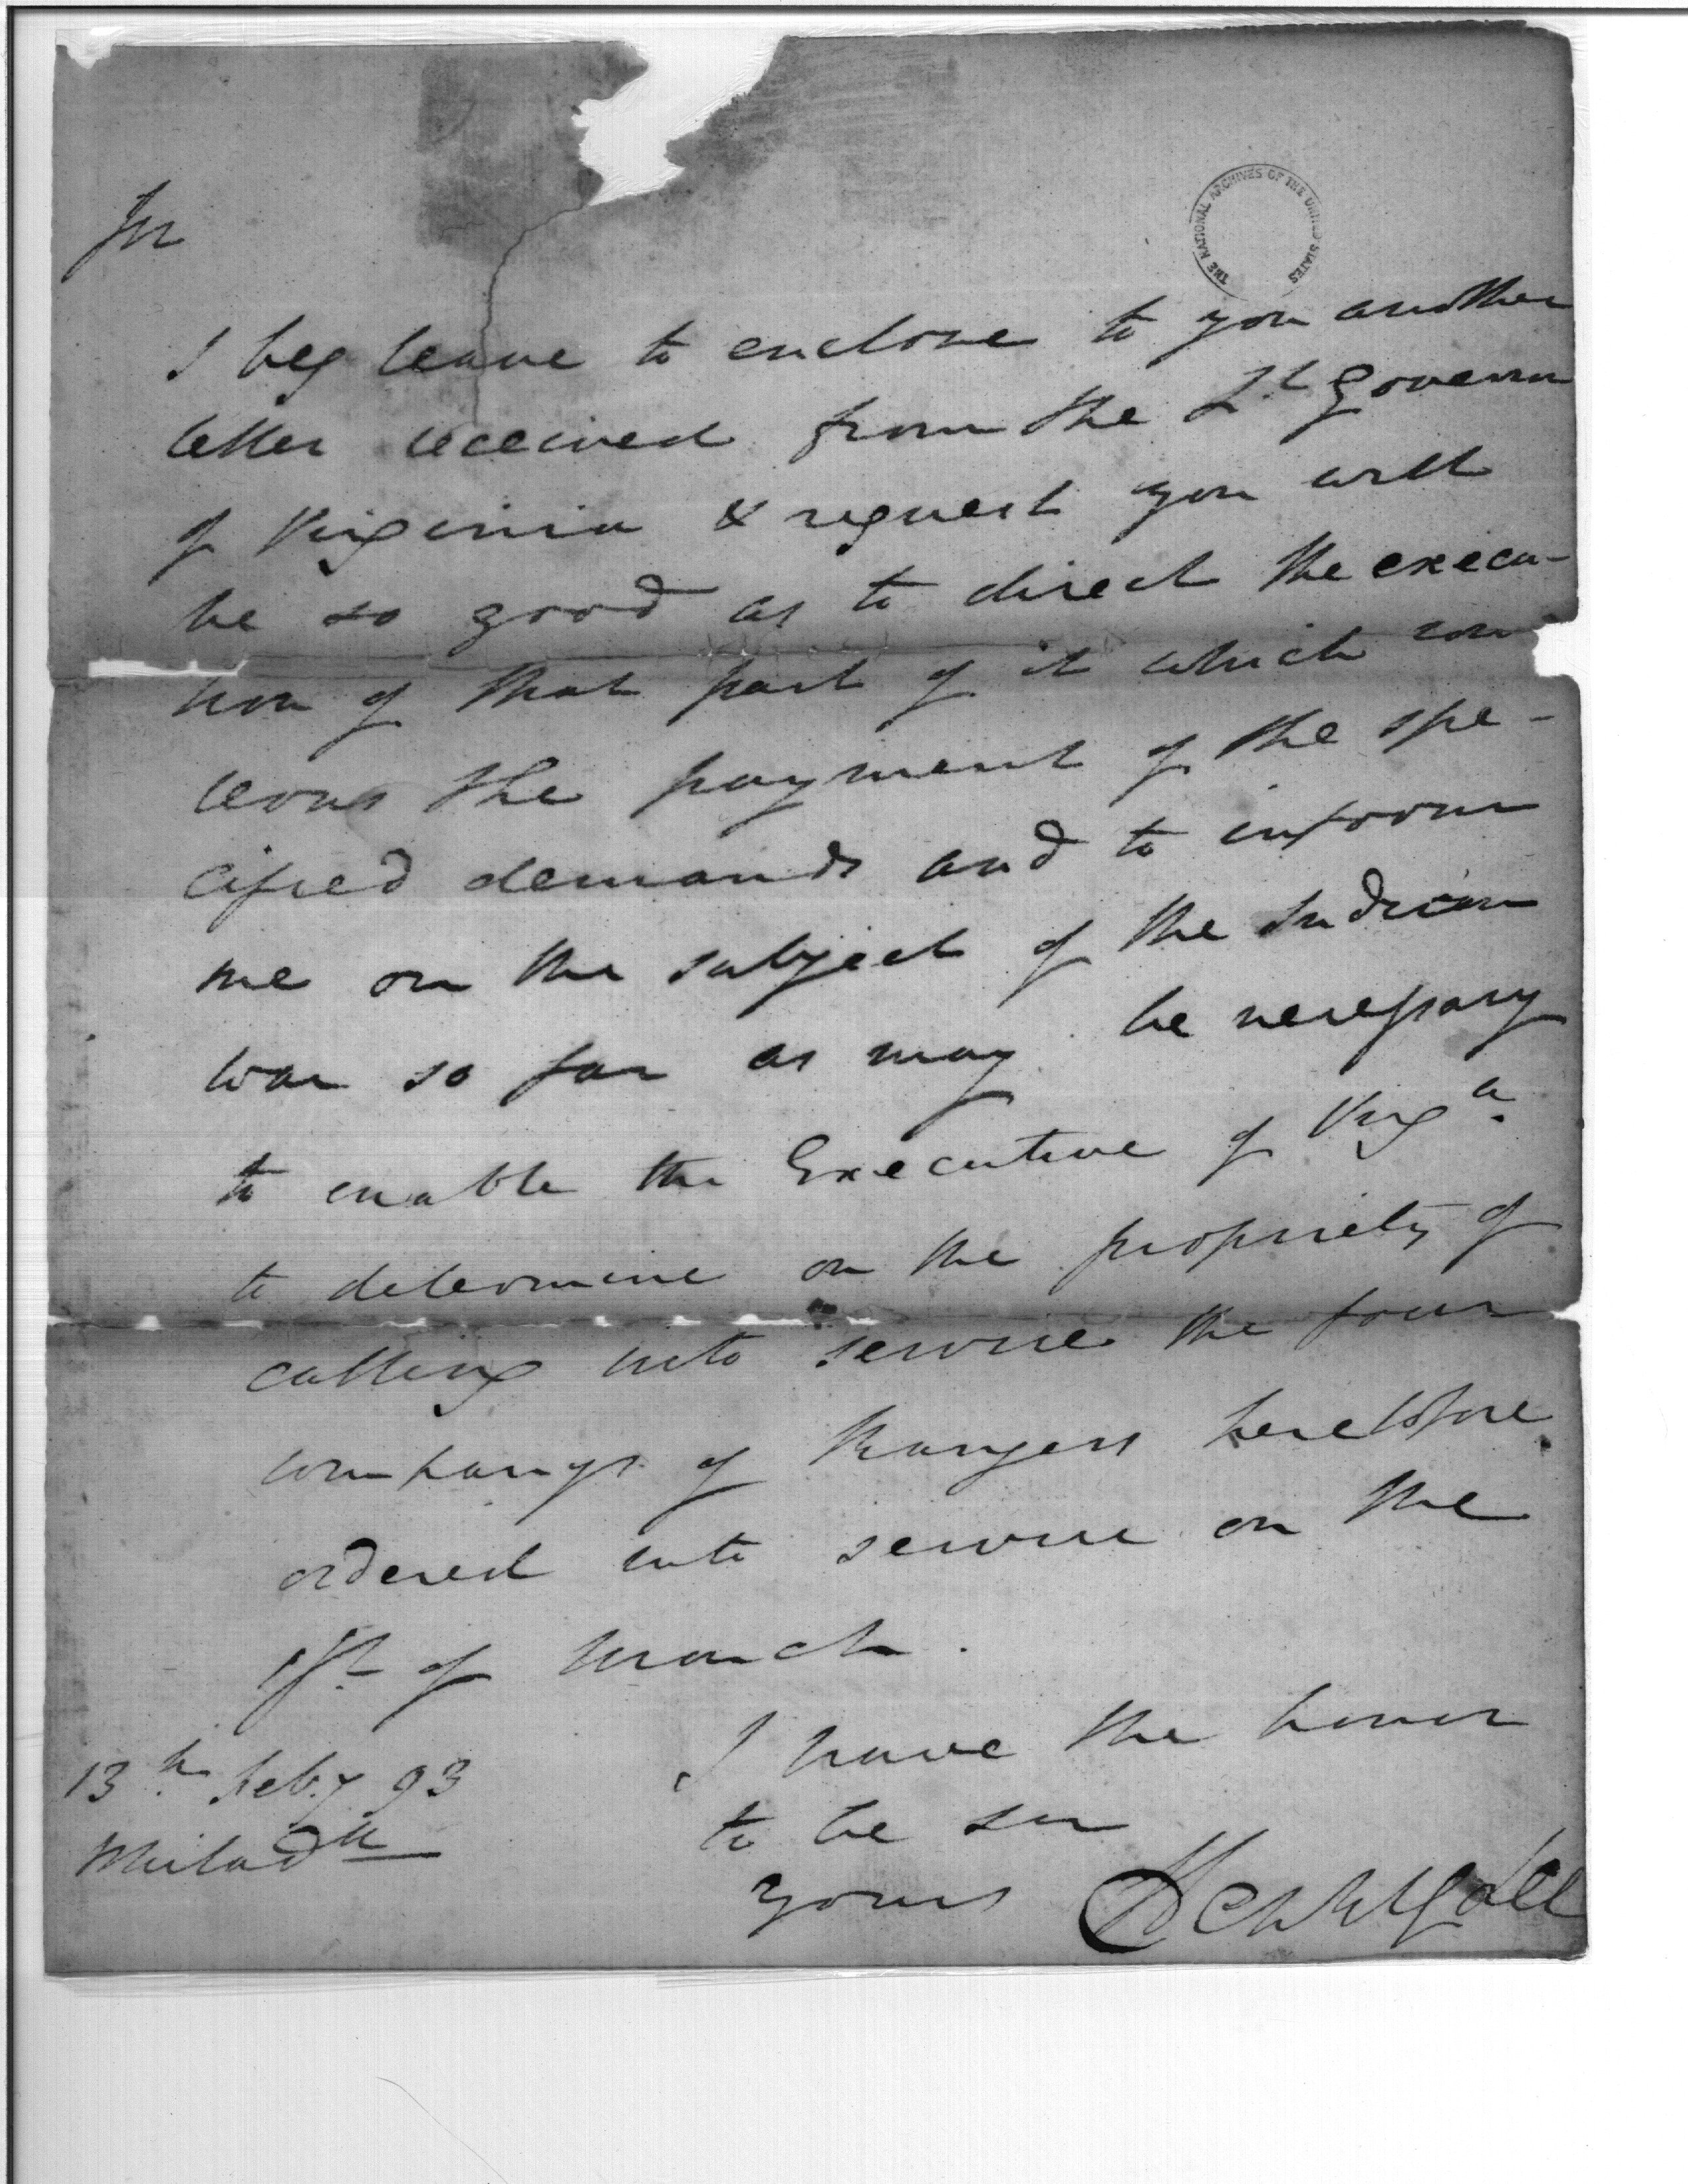 Sir
THE NATIONAL ARCHIVES OF THE UNITED STATES
I beg leave to enclose to you another
letter received from the Lt Governor
of Virginia & request you will
be so good as to direct the execu-
tion of that part of it which con
cerns the payment of the spe-
cified demands and to inform
me on the subject of the Indian
war so far as may be necessary
to enable the Executive of Virga
to determine on the propriety of
calling into service the four
companys of Rangers heretofore
ordered into service on the
1st of march.
I have the honor
13th feby 93
to be sir
Philada
yours Henry Lee